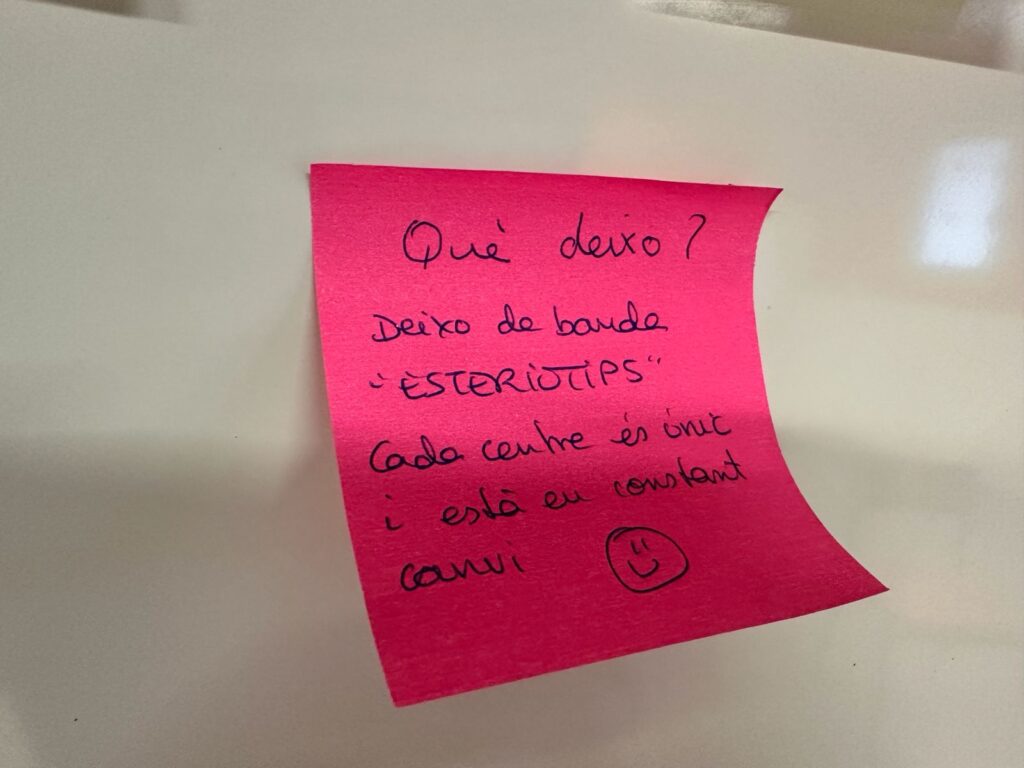 Què deixo?
Deixo de banda
"ESTERIOTIPS"
Cada centre és únic
i està en constant
canvi